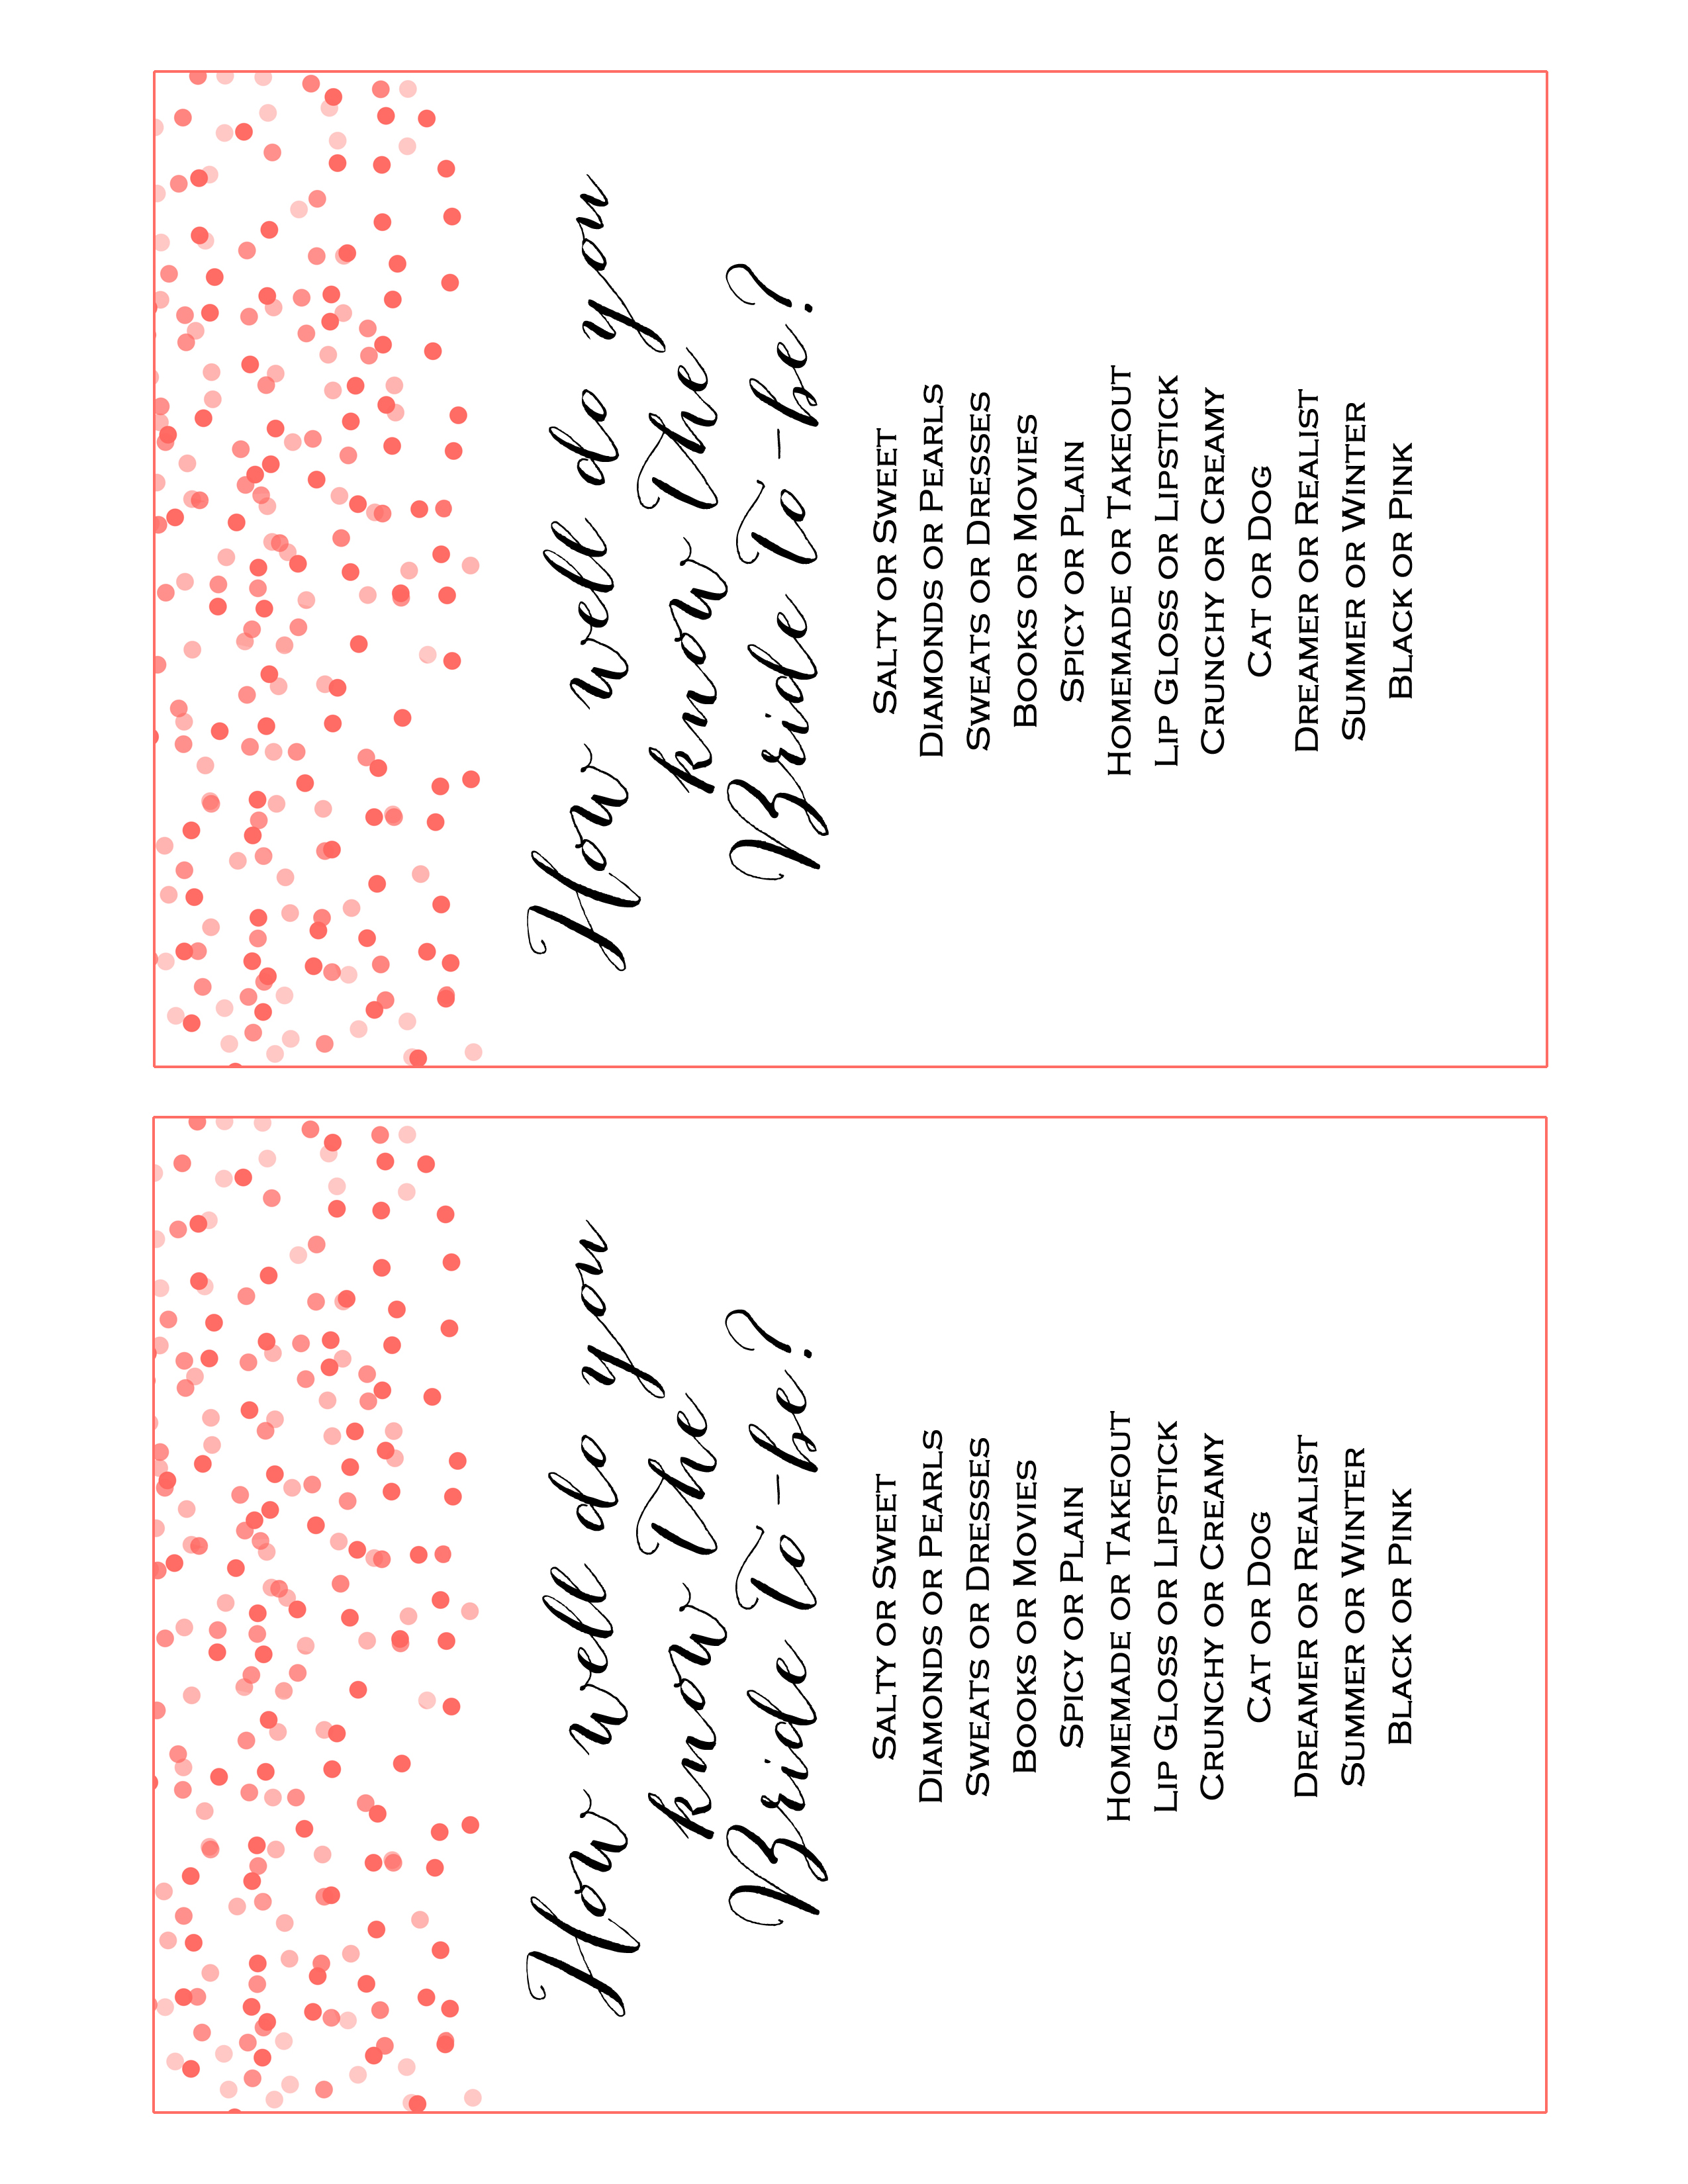 How well do you
know the
Bride To-be?
Salty or Sweet
Diamonds or Pearls
Sweats or Dresses
Books or Movies
Spicy or Plain
Homemade or Takeout
Lip Gloss or Lipstick
Crunchy or Creamy
Cat or Dog
Dreamer or Realist
Summer or Winter
Black or Pink
How well do you
know the
Bride To-be?
Salty or Sweet
Diamonds or Pearls
Sweats or Dresses
Books or Movies
Spicy or Plain
Homemade or Takeout
Lip Gloss or Lipstick
Crunchy or Creamy
Cat or Dog
Dreamer or Realist
Summer or Winter
Black or Pink